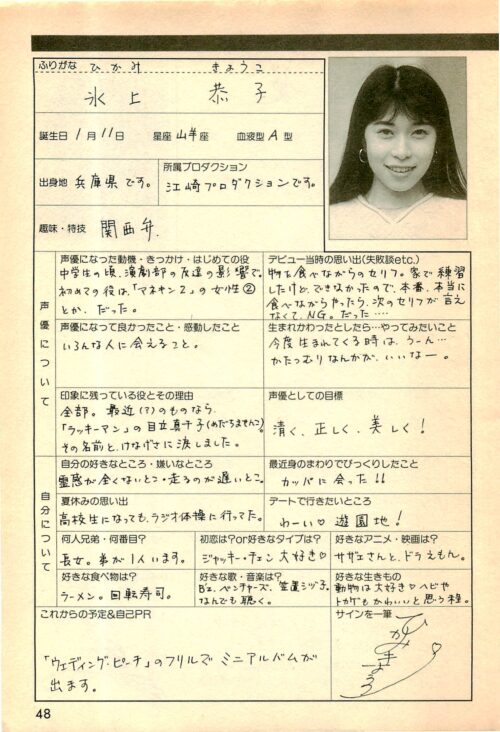 ふりがな ひかみ きょうこ
氷上 恭子
誕生日 1月11日 星座 山羊座 血液型 A型
所属プロダクション
出身地 兵庫県です。 江崎プロダクションです。
趣味・特技 関西弁.
声優について
声優になった動機・きっかけ・はじめての役
中学生の頃、演劇部の友達の影響で。
初めての役は、「マネキン2」の女性②
とか、だった。
デビュー当時の思い出(失敗談etc.)
物を食べながらのセリフ。家で練習
したけど、できなかったので、本番、本当に
食べながらやったら、次のセリフが言え
なくて、NG。だった……
声優になって良かったこと・感動したこと
いろんな人に会えること。
生まれかわったとしたら…やってみたいこと
今度生まれてくる時は、うーん…
かたつむりなんかが、いいなー。
印象に残っている役とその理由
全部。最近(?)のものなら、
「ラッキーマン」の目立真千子(めだちませんこ)
その名前と、けなげさに涙しました。
声優としての目標
清く、正しく、美しく!
自分について
自分の好きなところ・嫌いなところ
霊感が全くないとこ・走るのが遅いとこ。
最近身のまわりでびっくりしたこと
カッパに会った!!
夏休みの思い出
高校生になっても、ラジオ体操に行ってた。
デートで行きたいところ
わーい♡ 遊園地!
何人兄弟・何番目?
長女。弟が1人います。
初恋は?or好きなタイプは?
ジャッキー・チェン 大好き♡
好きなアニメ・映画は?
サザエさんと、ドラえもん。
好きな食べ物は?
ラーメン。回転寿司。
好きな歌・音楽は?
B'z、ベンチャーズ、笠置シヅ子。
なんでも聴く。
好きな生きもの
動物は大好き♡ヘビや
トカゲもかわいいと思う程。
これからの予定&自己PR
「ウェディング・ピーチ」のフリルで ミニアルバムが
出ます。
サインを一筆
48